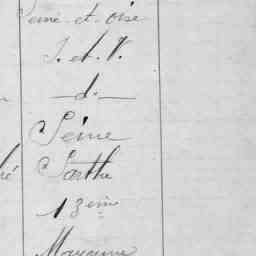 Seine-et-Oise
I. et V.
— d. —
Seine
Sarthe
13eme
Mayenne